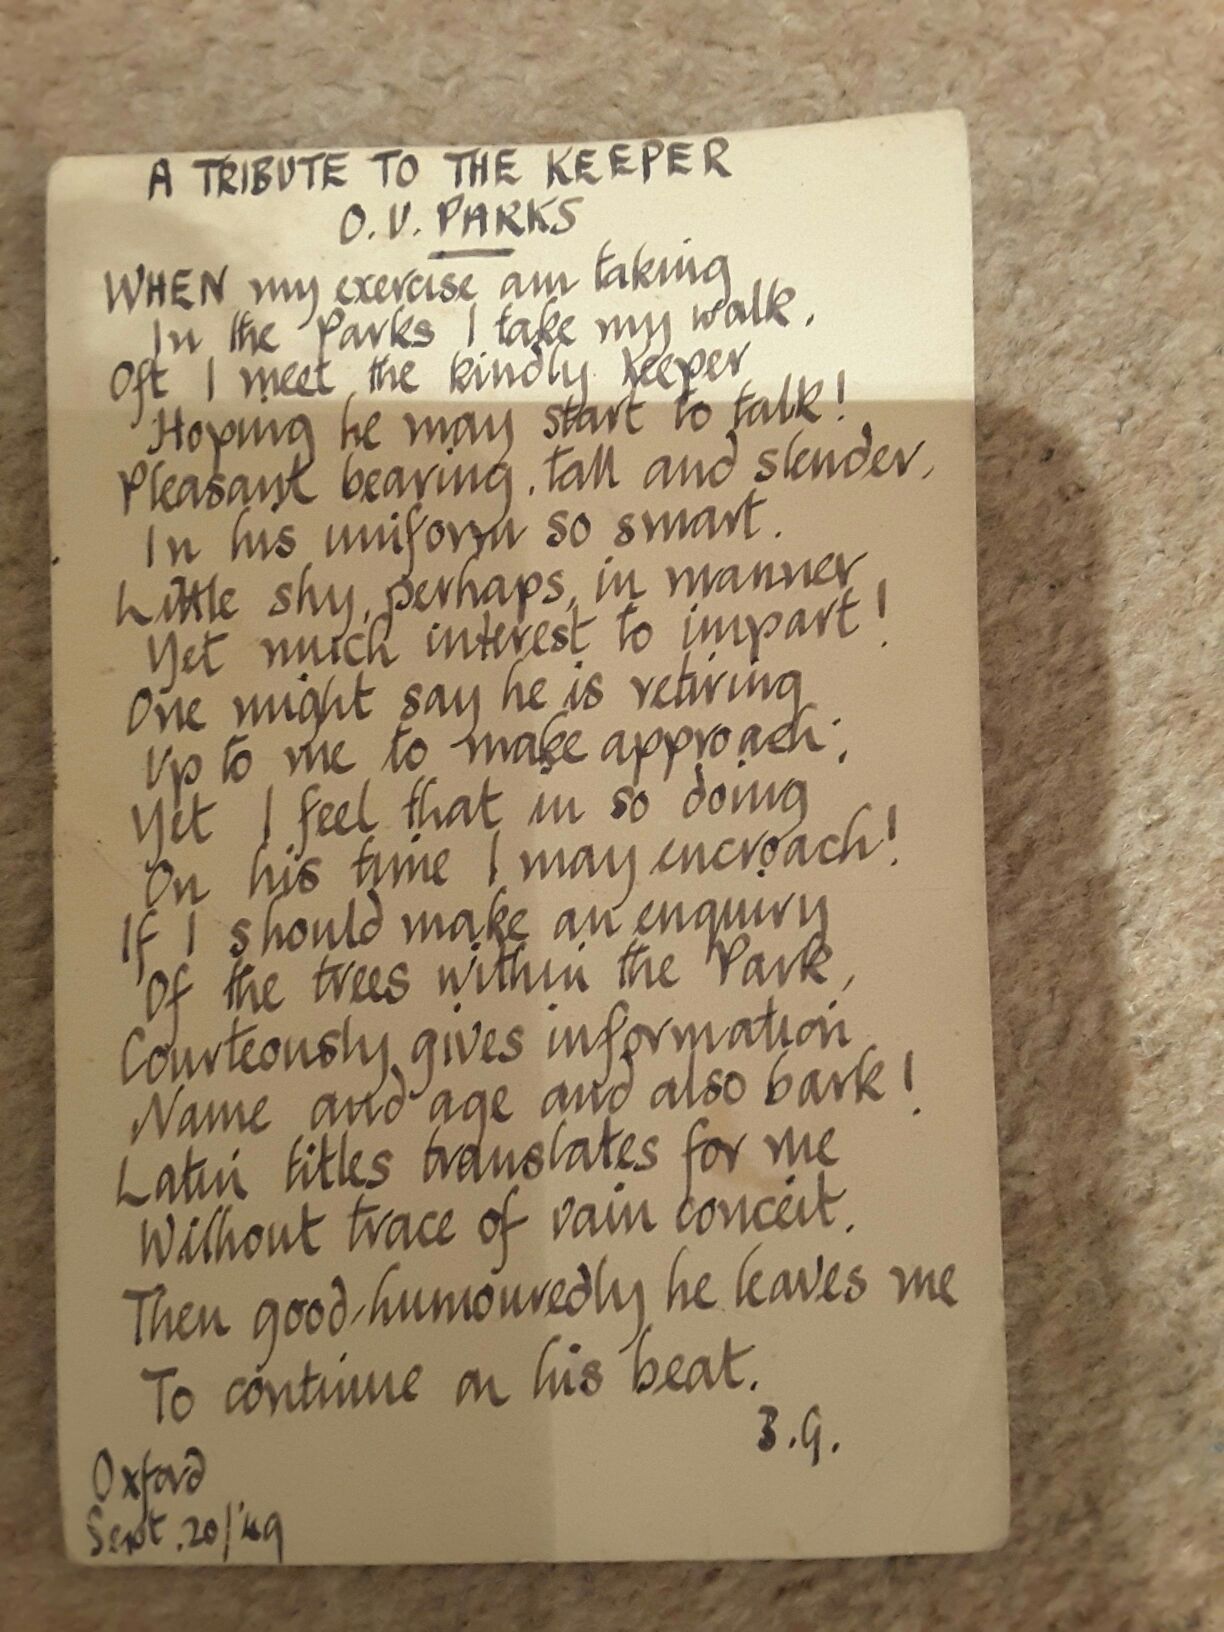 A TRIBUTE TO THE KEEPER
O.U. PARKS
WHEN my exercise am taking
In the Parks I take my walk.
Oft I meet the kindly keeper
Hoping he may start to talk!
Pleasant bearing, tall and slender,
In his uniform so smart.
Little shy, perhaps, in manner
Yet much interest to impart!
One might say he is retiring
Up to me to make approach;
Yet I feel that in so doing
On his time I may encroach!
If I should make an enquiry
Of the trees within the Park,
Courteously gives information
Name and age and also bark!
Latin titles translates for me
Without trace of vain conceit.
Then good-humouredly he leaves me
To continue on his beat.
B.G.
Oxford
Sept. 20/'49